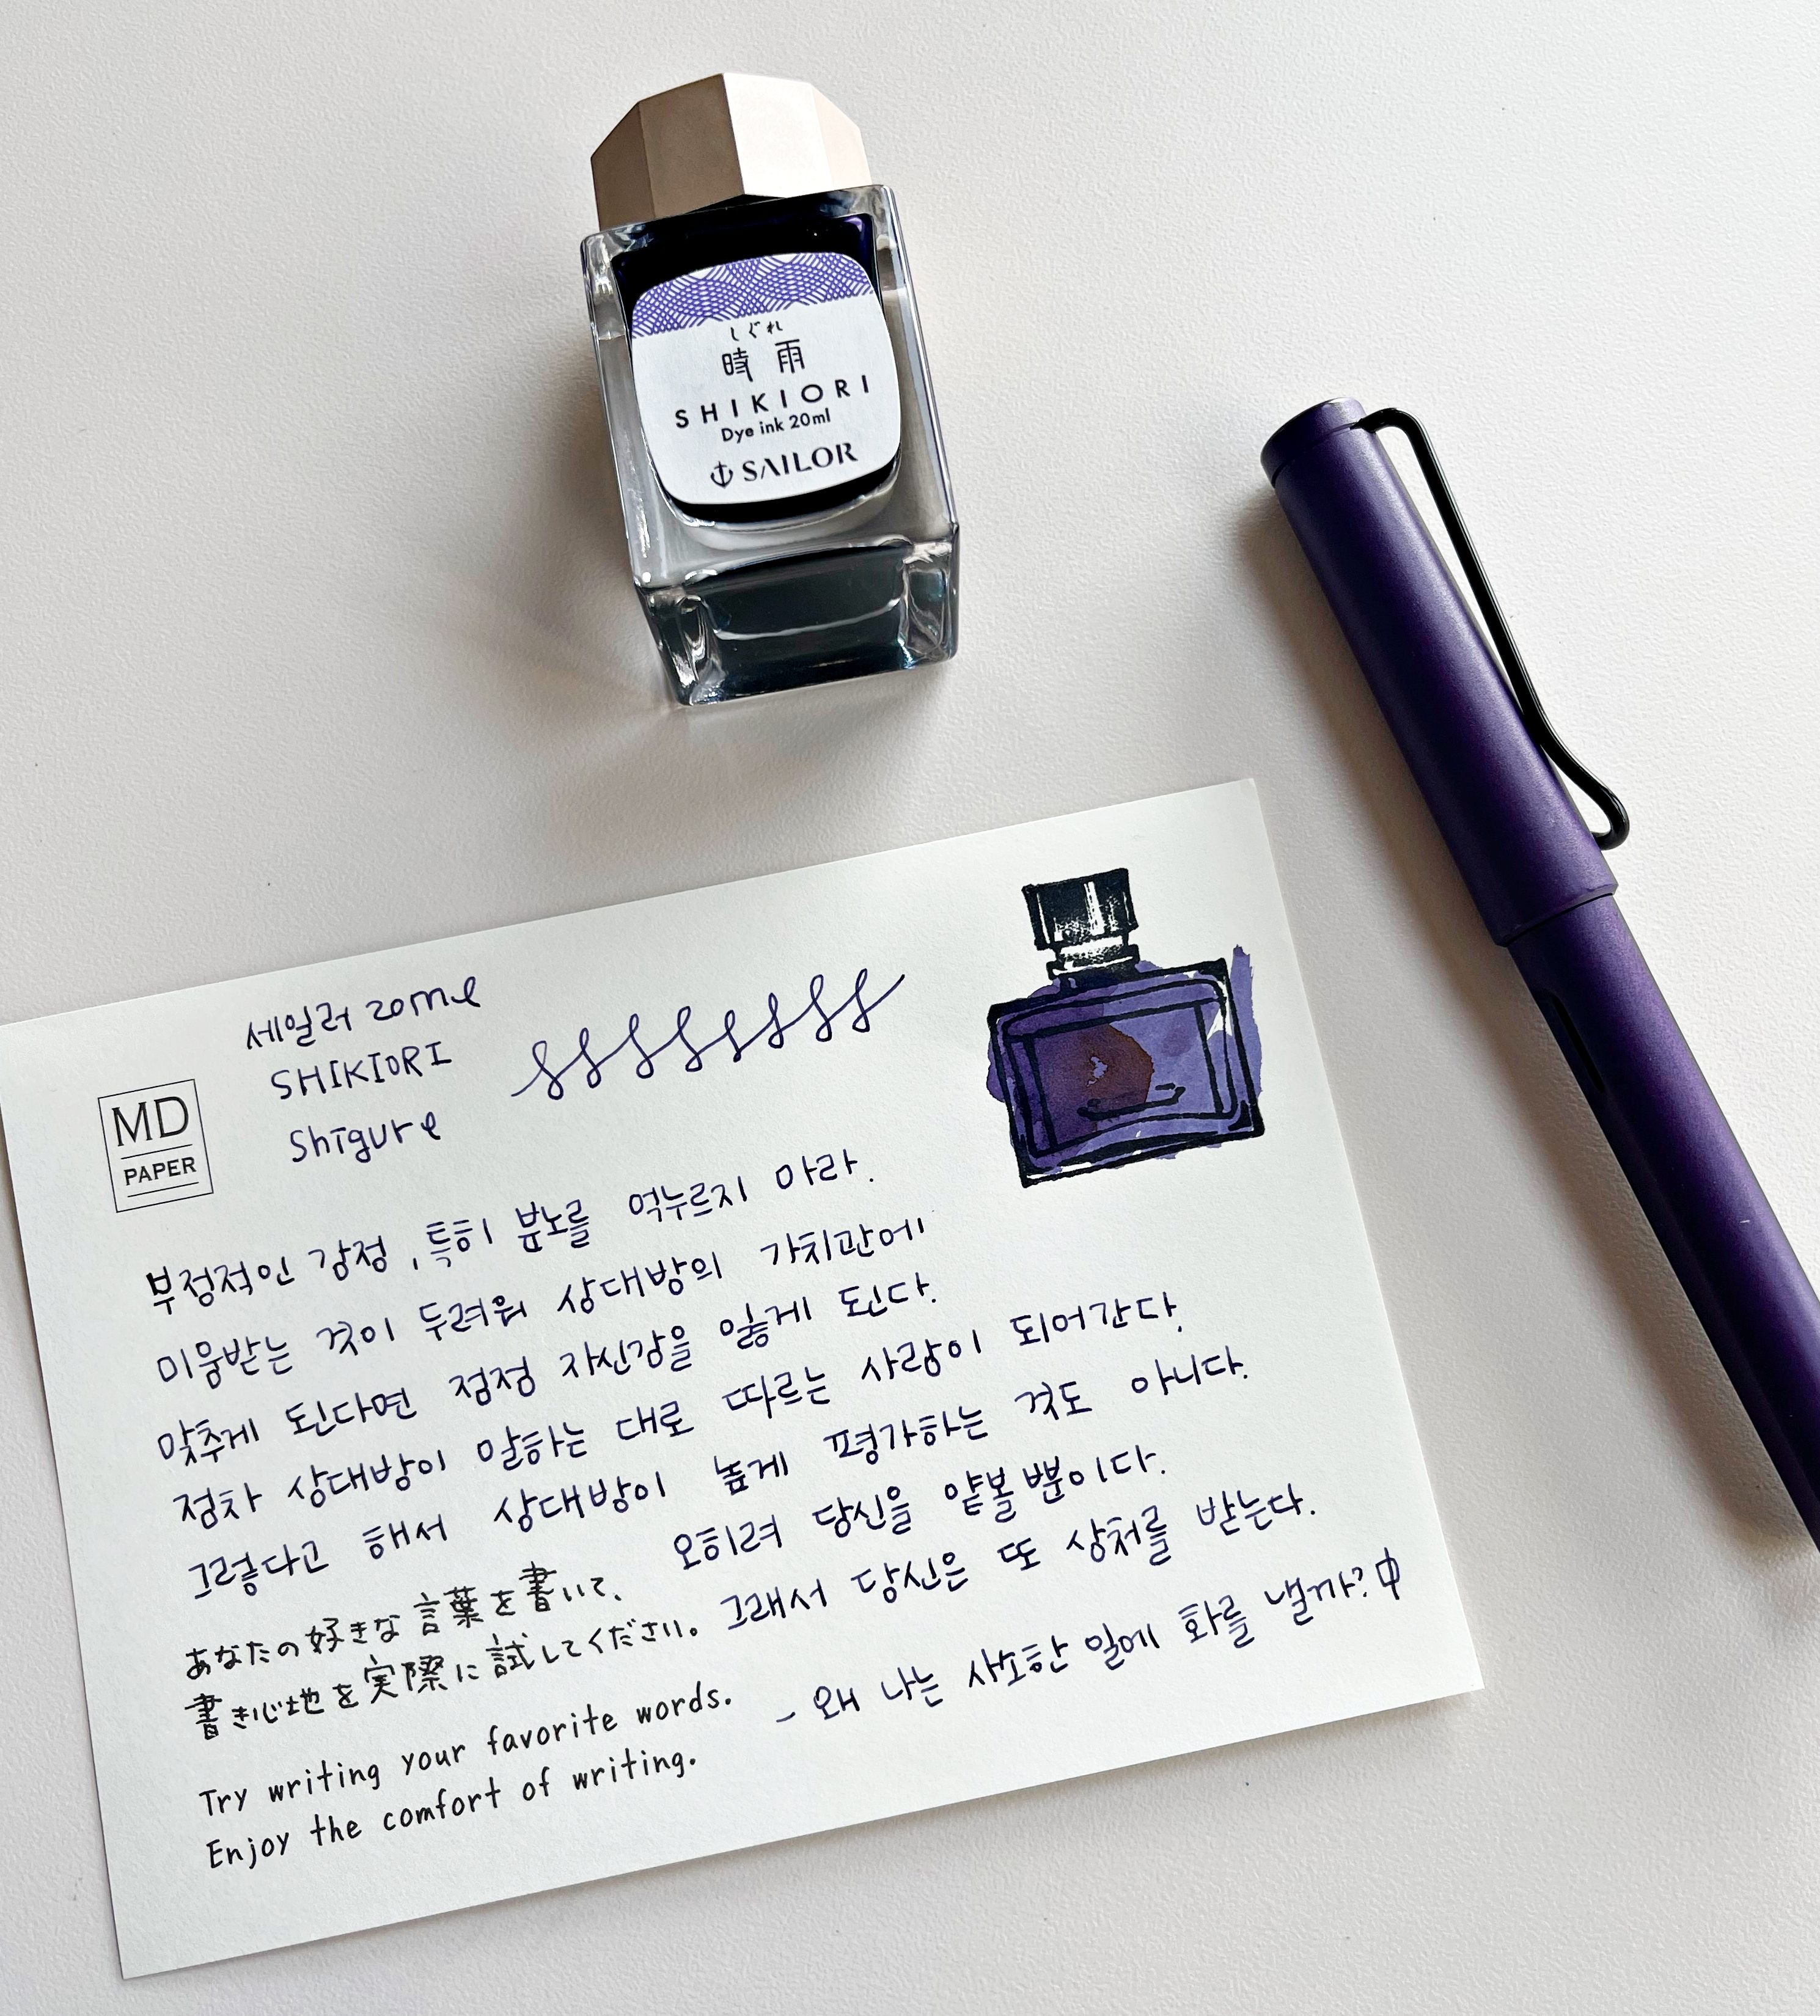 しぐれ
時雨
SHIKIORI
Dye ink 20ml
SAILOR
세일러 20ml
SHIKIORI
Shigure
MD
PAPER
부정적인 감정, 특히 분노를 억누르지 마라.
미움받는 것이 두려워 상대방의 가치관에
맞추게 된다면 점점 자신감을 잃게 된다.
점차 상대방이 말하는 대로 따르는 사람이 되어간다.
그렇다고 해서 상대방이 높게 평가하는 것도 아니다.
오히려 당신을 얕볼 뿐이다.
그래서 당신은 또 상처를 받는다.
- 왜 나는 사소한 일에 화를 낼까?
あなたの好きな言葉を書いて、
書き心地を実際に試してください。
Try writing your favorite words.
Enjoy the comfort of writing.